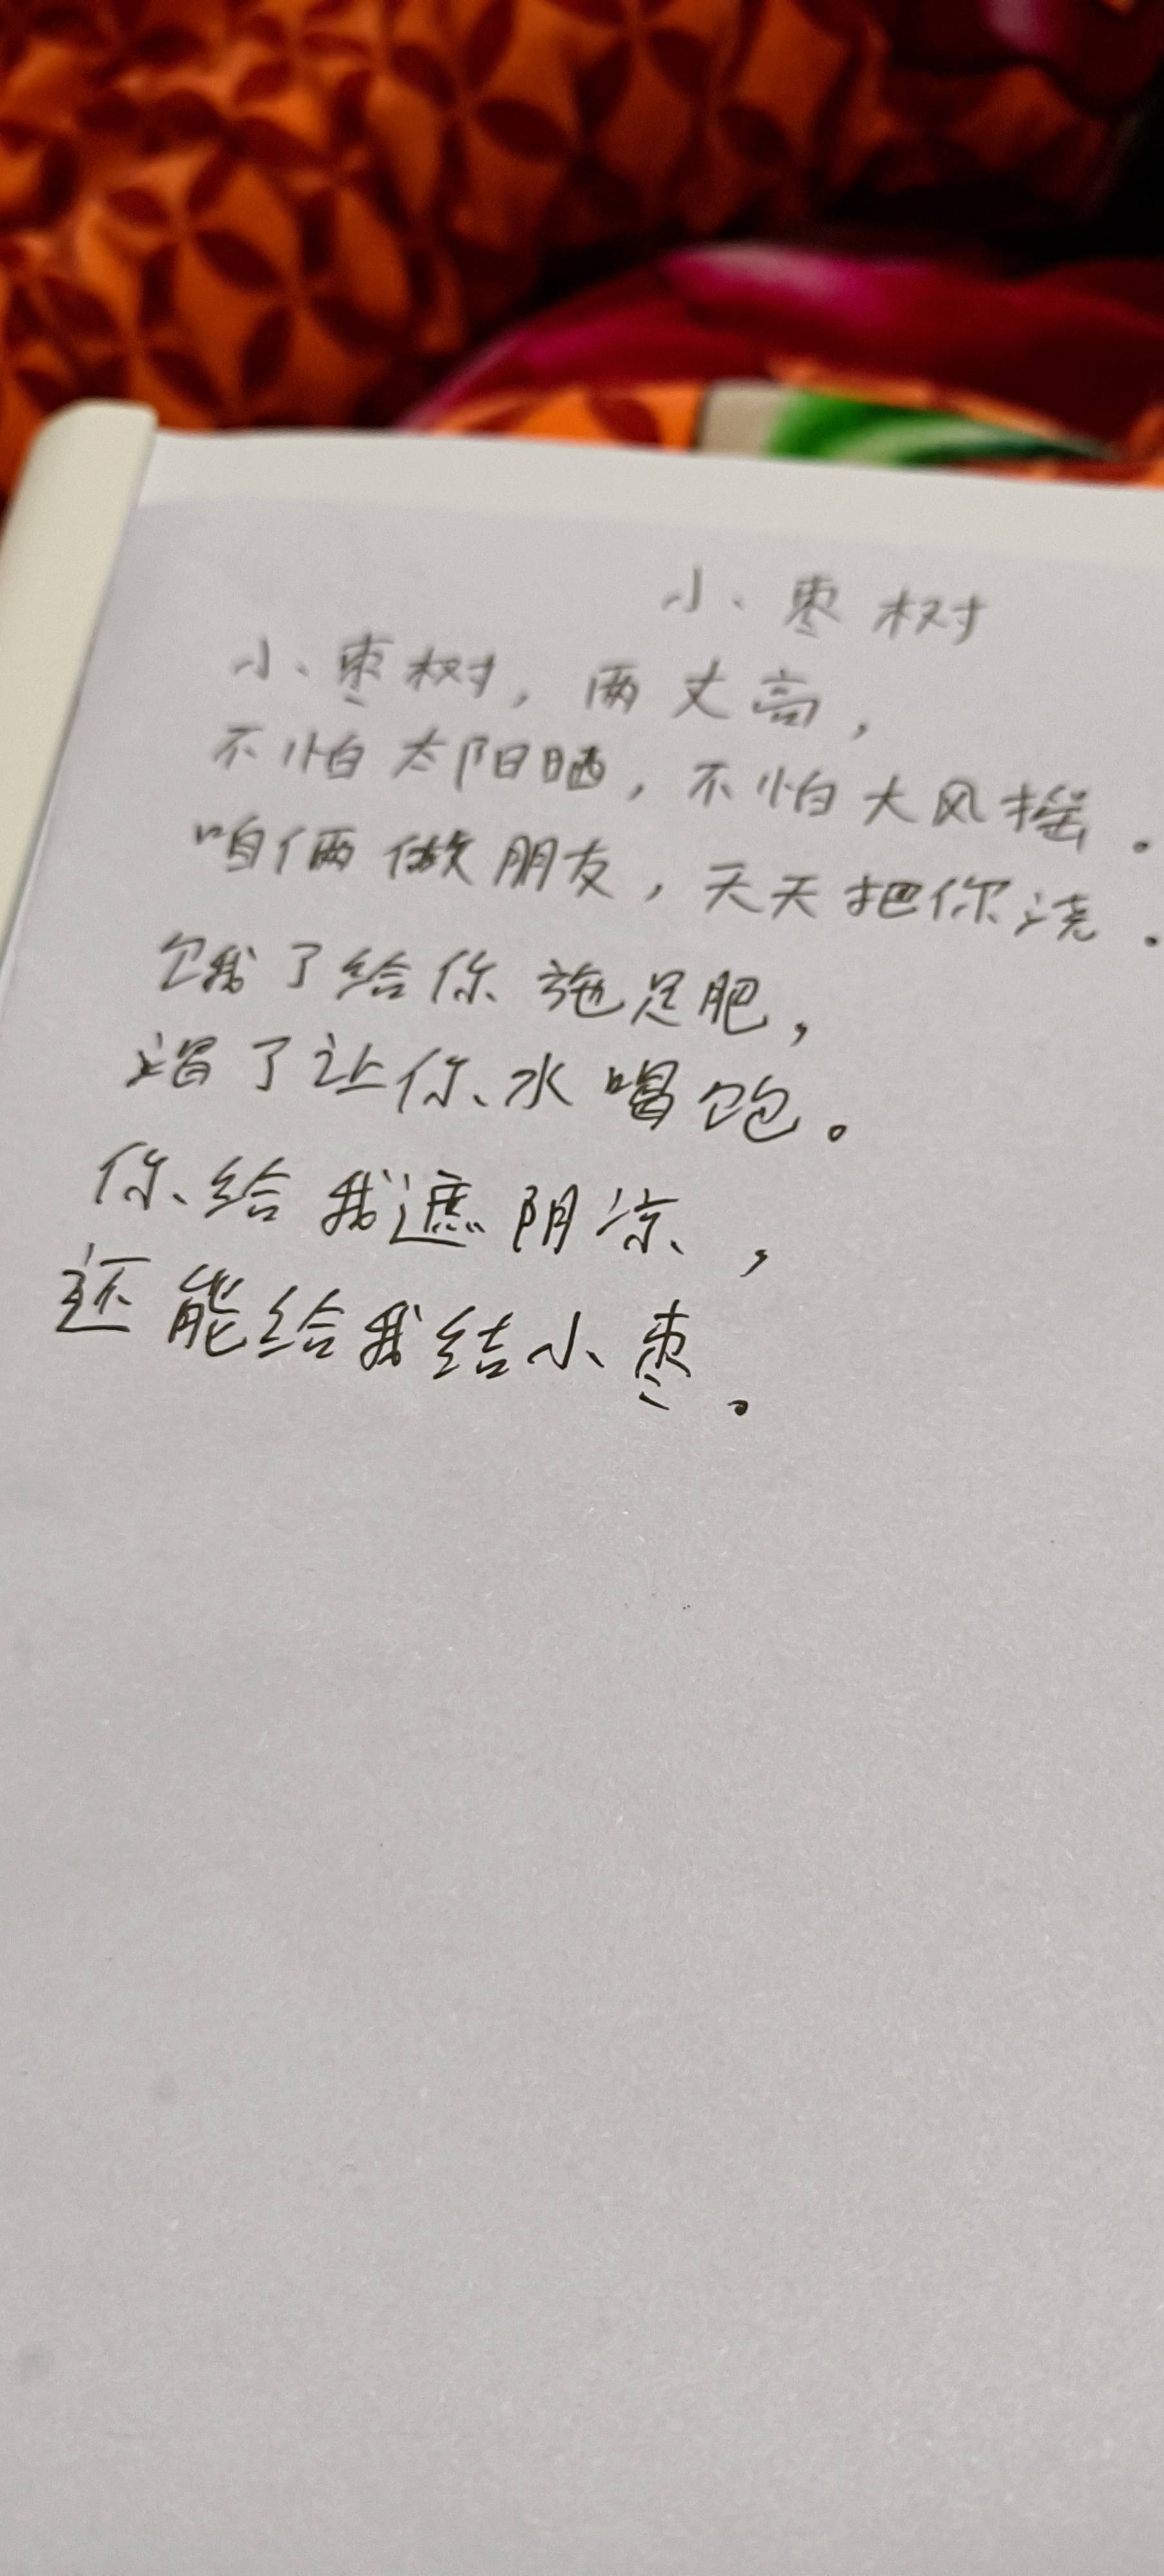 小枣树
小枣树，两丈高，
不怕太阳晒，不怕大风摇。
咱俩做朋友，天天把你浇。
饿了给你施足肥，
渴了让你水喝饱。
你给我遮阴凉，
还能给我结小枣。